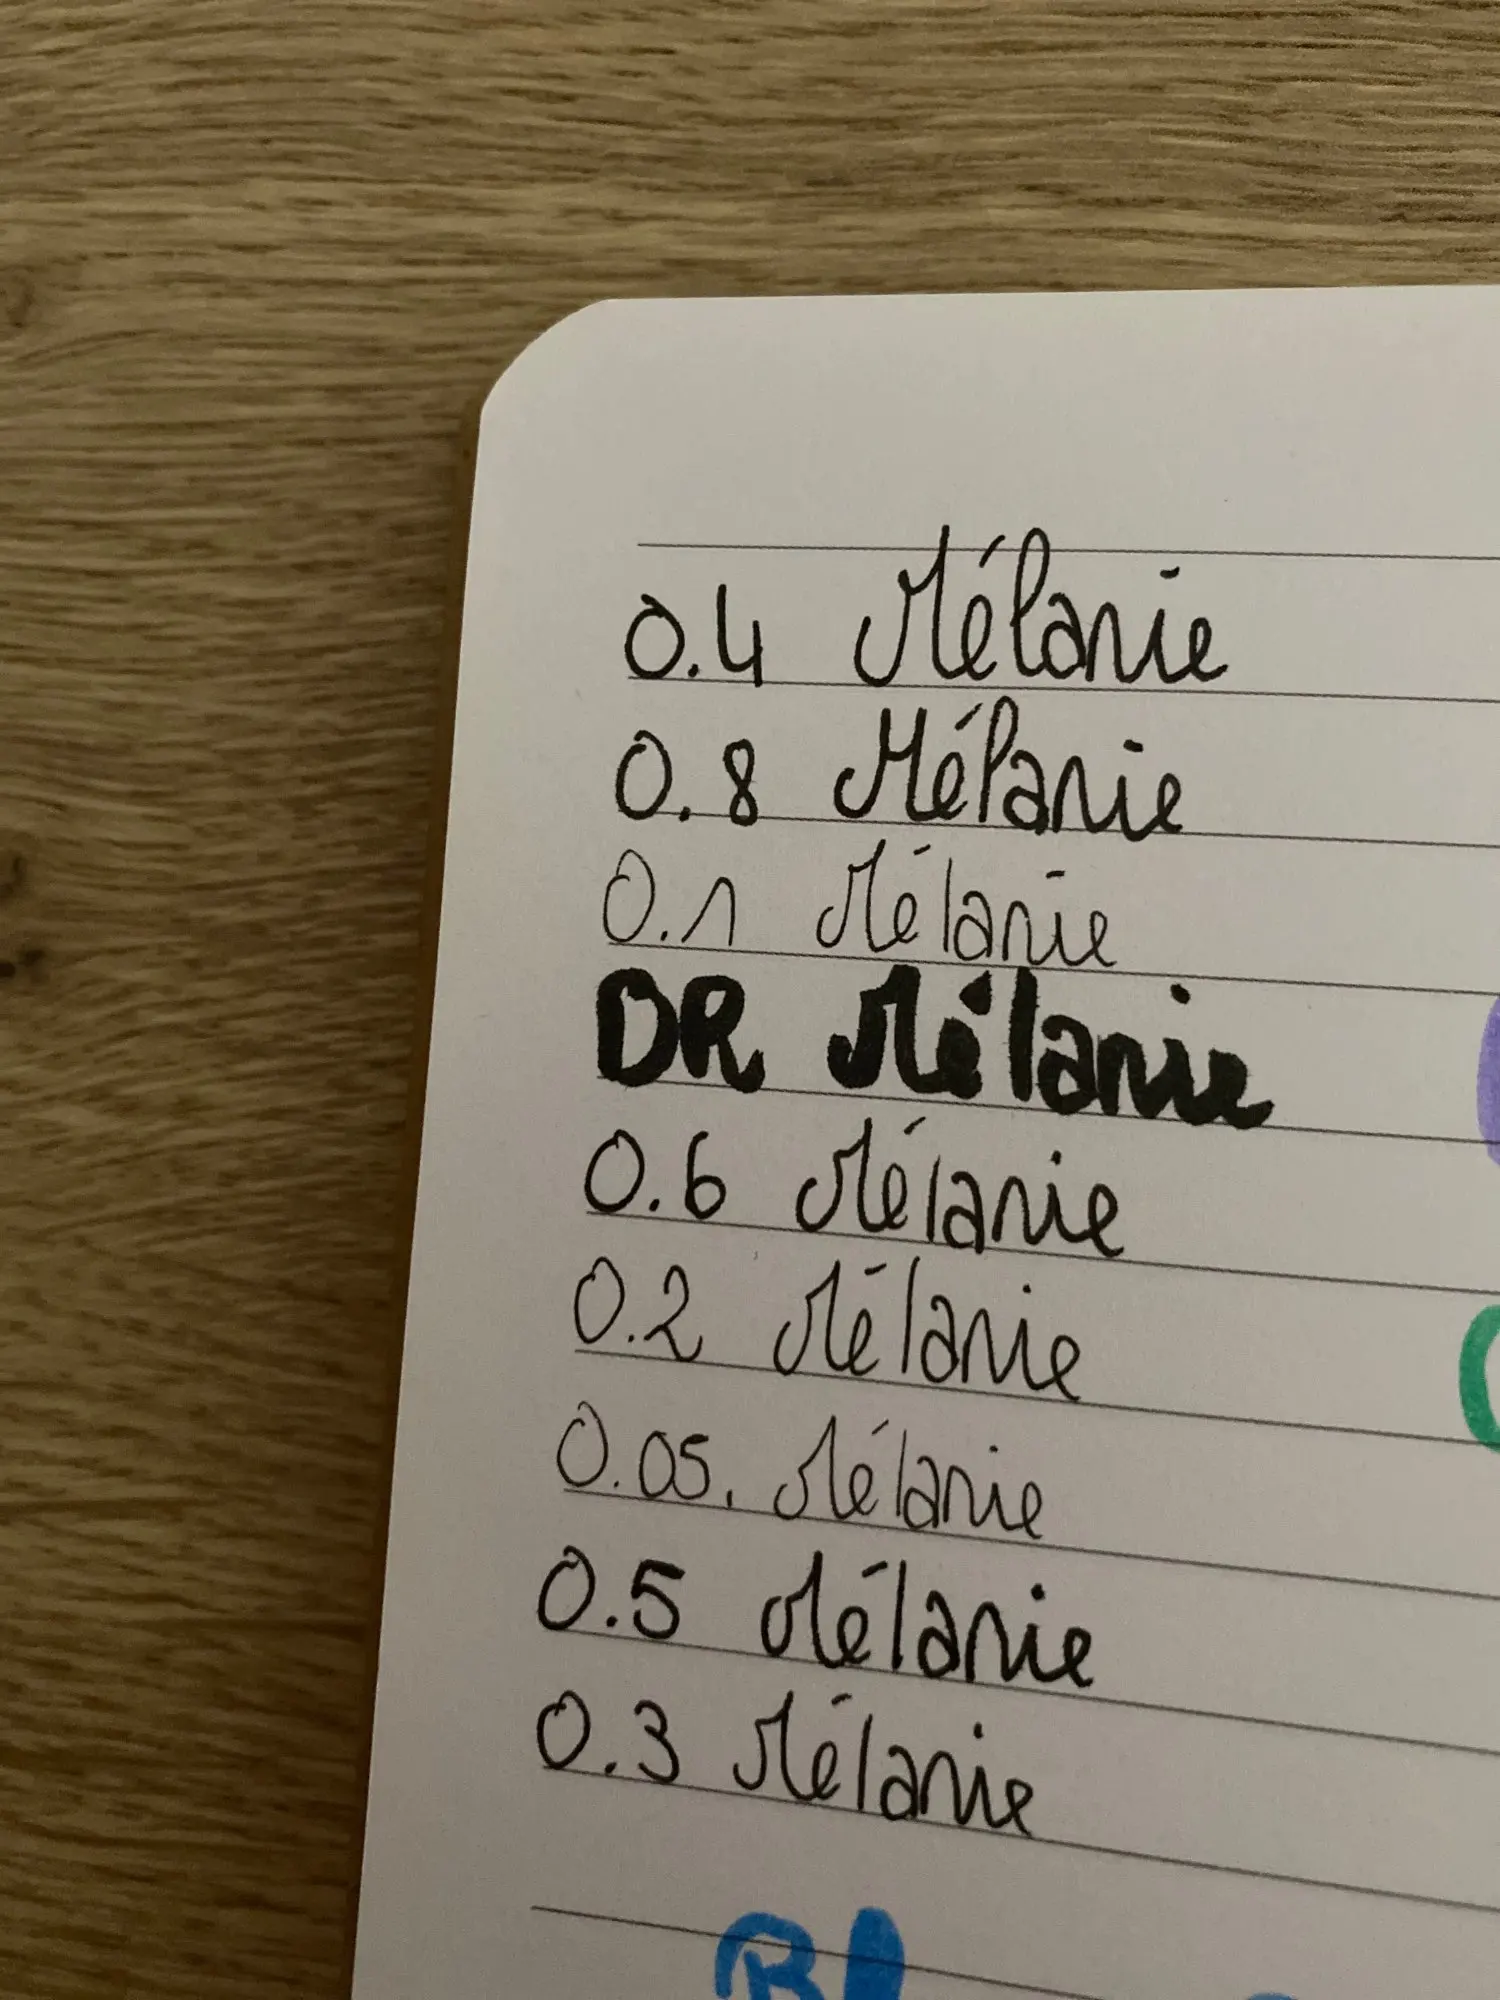 0.4 Mélanie
0.8 Mélanie
0.1 Mélanie
DR Mélanie
0.6 Mélanie
0.2 Mélanie
0.05. Mélanie
0.5 Mélanie
0.3 Mélanie